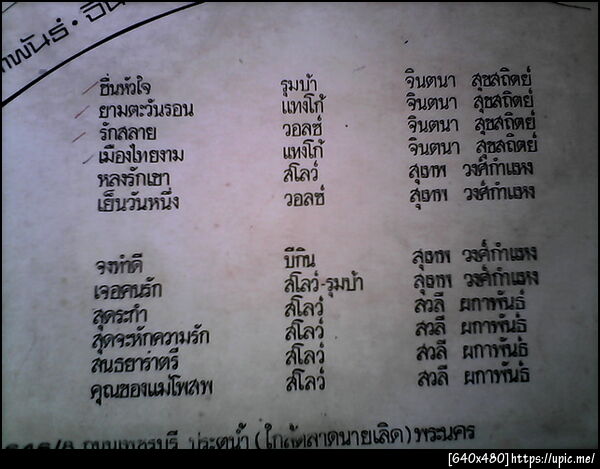 กาพันธ์ · จิน
ชื่นหัวใจ รุมบ้า จินตนา สุขสถิตย์
ยามตะวันรอน แทงโก้ จินตนา สุขสถิตย์
รักสลาย วอลซ์ จินตนา สุขสถิตย์
เมืองไทยงาม แทงโก้ จินตนา สุขสถิตย์
หลงรักเขา สโลว์ สุเทพ วงศ์กำแหง
เย็นวันหนึ่ง วอลซ์ สุเทพ วงศ์กำแหง
จงทำดี บีกิน สุเทพ วงศ์กำแหง
เจอคนรัก สโลว์-รุมบ้า สุเทพ วงศ์กำแหง
สุดระกำ สโลว์ สวลี ผกาพันธ์
สุดจะหักความรัก สโลว์ สวลี ผกาพันธ์
สนธยาราตรี สโลว์ สวลี ผกาพันธ์
คุณของแม่โพสพ สโลว์ สวลี ผกาพันธ์
ถนนเพชรบุรี ประตูน้ำ (ใกล้ตลาดนายเลิด) พระนคร
[640x480]https://upic.me/